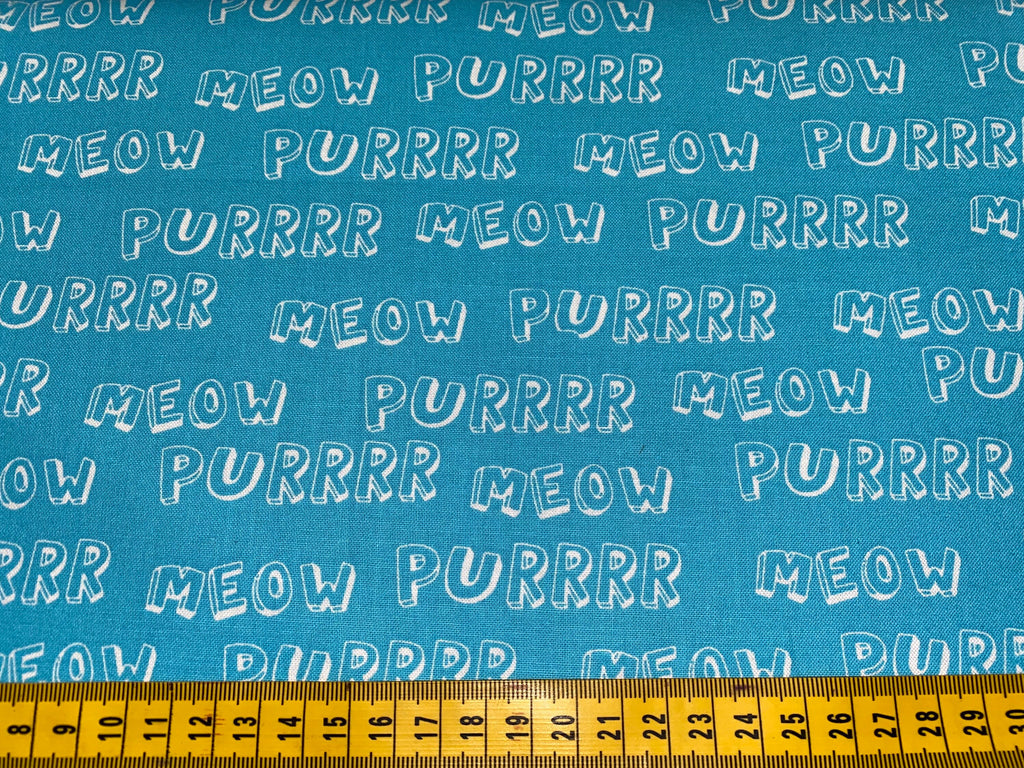 MEOW PURRRR MEOW PURRRR
PURRRR MEOW PURRRR MEOW PU
MEOW PURRRR MEOW PURRRR
OW PURRRR MEOW PURRRR M
URRRR MEOW PURRRR MEOW
RR MEOW PURRRR MEOW PU
OW PURRRR MEOW PURRRR
RRR MEOW PURRRR MEOW
MEOW PURRRR MEOW PURRR
8 9 10 11 12 13 14 15 16 17 18 19 20 21 22 23 24 25 26 27 28 29 30